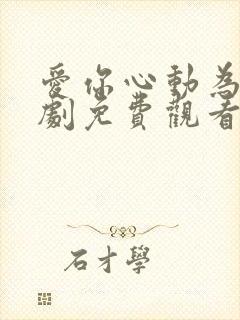 愛你心動為
劇免費觀看
石才學